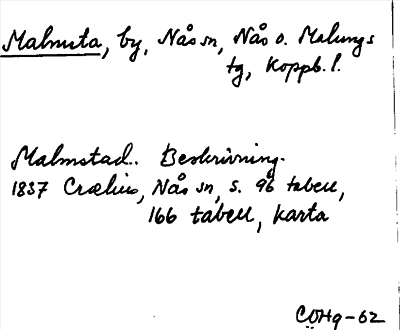 Malmsta, by, Nås sn, Nås o. Malungs
tg, Koppb. l.
Malmstad. Beskrivning.
1837 Crælius, Nås sn, s. 96 tabell,
166 tabell, karta
CÖHg-62